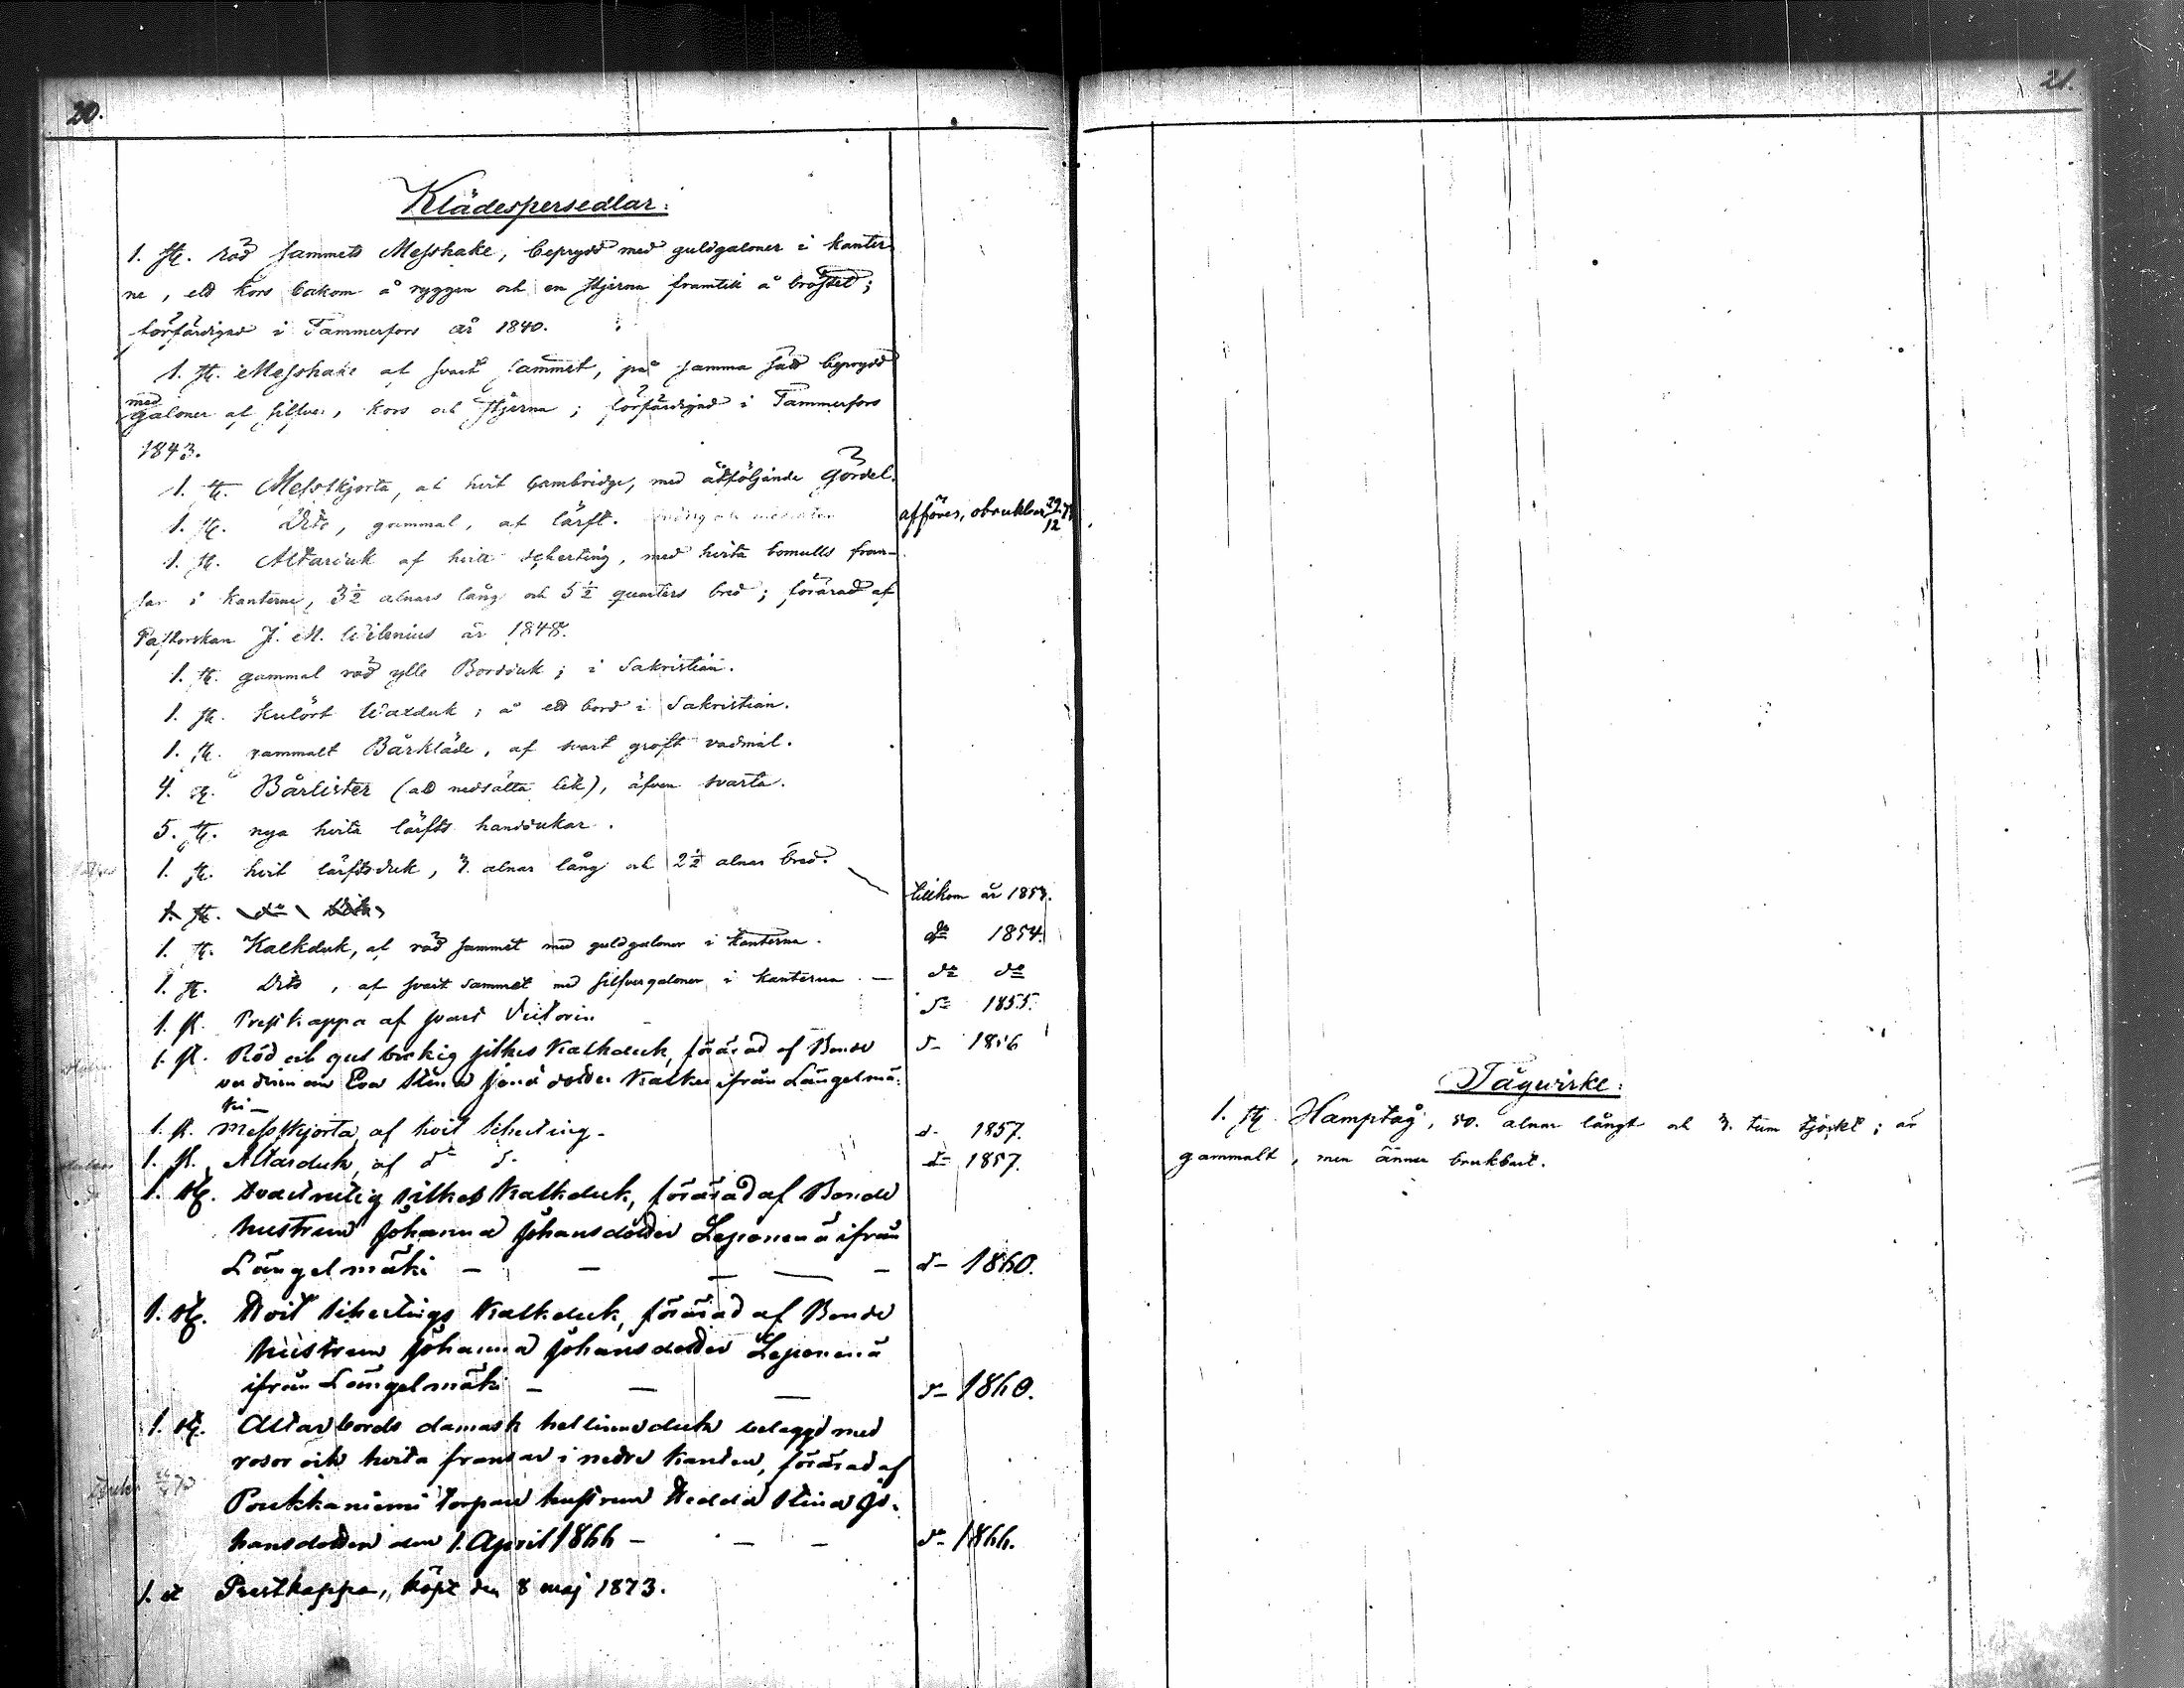 20.
Klädespersedlar:
1. st. röd sammets Messhake, beprydd med guldgaloner i kanter
ne, ett kors bakom å ryggen och en stjerna framtill å bröstet;
förfärdigad i Tammerfors år 1840.
1. st. Messhake af svart sammet, på samma sätt beprydd
med
galoner af silfver, kors och stjerna; förfärdigad i Tammerfors
1843.
1. st. Messskjorta, af hvit Cambridge, med åtföljande gördel.
1. st. Dito, gammal, af lärft. afföres, obrukbar 29/12
1. st. Altarduk af hvit scherting, med hvita bomulls fran-
sar i kanterne, 3½ alnars lång och 5½ quarters bred; förärad af
Pastorskan J. M. Wilenius år 1848.
1. st. gammal röd ylle Bordduk; i Sakristian.
1. st. kulört Waxduk; å ett bord i Sakristian.
1. st. gammalt Bårkläde, af svart groft vadmal.
4. st. Bårlister (att nedsätta lik), äfven svarta.
5. st. nya hvita lärfts handdukar.
1. st. hvit lärftsduk, 3. alnar lång och 2½ alnar bred. tillkom år 1853.
1. st. do
1. st. Kalkduk, af röd sammet med guldgaloner i kanterna. do 1854.
1. st. Dito, af svart sammet med silfvergaloner i kanterna — do do
1. st. Prestkappa af svart Victorin do 1855.
1. st. Röd och gul silkes Kalkduk, förärad af Bonde
Eva Stina dotter Kalke ifrån Längelmä- d- 1856
ki —
1. st. Messskjorta af hvit scherting - d- 1857.
1. st. Altarduk, af do do d- 1857.
1. st. Svartrutig silkes Kalkduk, förärad af Bonde
hustrun Johanna Johansdotter Leponen ifrån
Längelmäki — — — — d- 1860.
1. st. Hvit schertings Kalkduk, förärad af Bonde
hustrun Johanna Johansdotter Leponen
ifrån Längelmäki — — — d- 1860.
1. st. Altarbords damask hellinneduk belaggd med
rosor och hvita fransar i nedre kanten, förärad af
Poukkaniemi torpare hustrun Hedda Stina Jo-
hansdotter den 1. April 1866 — — — do 1866.
1. st Prestkappa, köpt den 8 maj 1873.
21.
Tågwirke:
1. st. Hamptåg, 50. alnar långt och 3. tum tjockt; är
gammalt, men ännu brukbart.